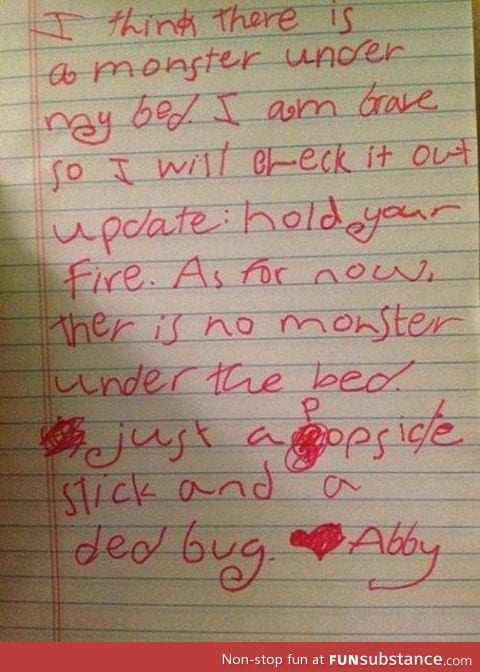 I think there is
a monster under
my bed. I am brave
so I will check it out
update: hold your
fire. As for now,
ther is no monster
under the bed.
just a popsicle
stick and a
ded bug. ❤ Abby
Non-stop fun at FUNsubstance.com